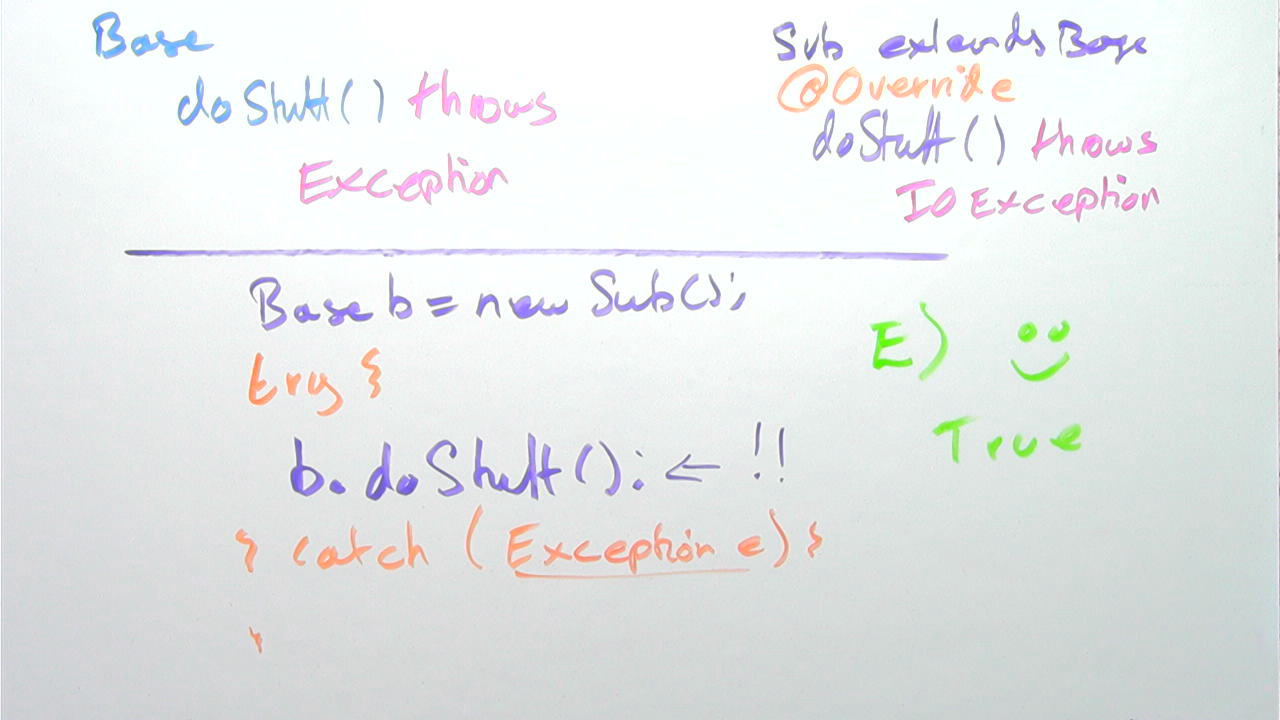 Base
doStuff() throws
Exception
Sub extends Base
@Override
doStuff() throws
IOException
Base b = new Sub();
try {
b.doStuff(); ← !!
} catch (Exception e) {
}
E)
True